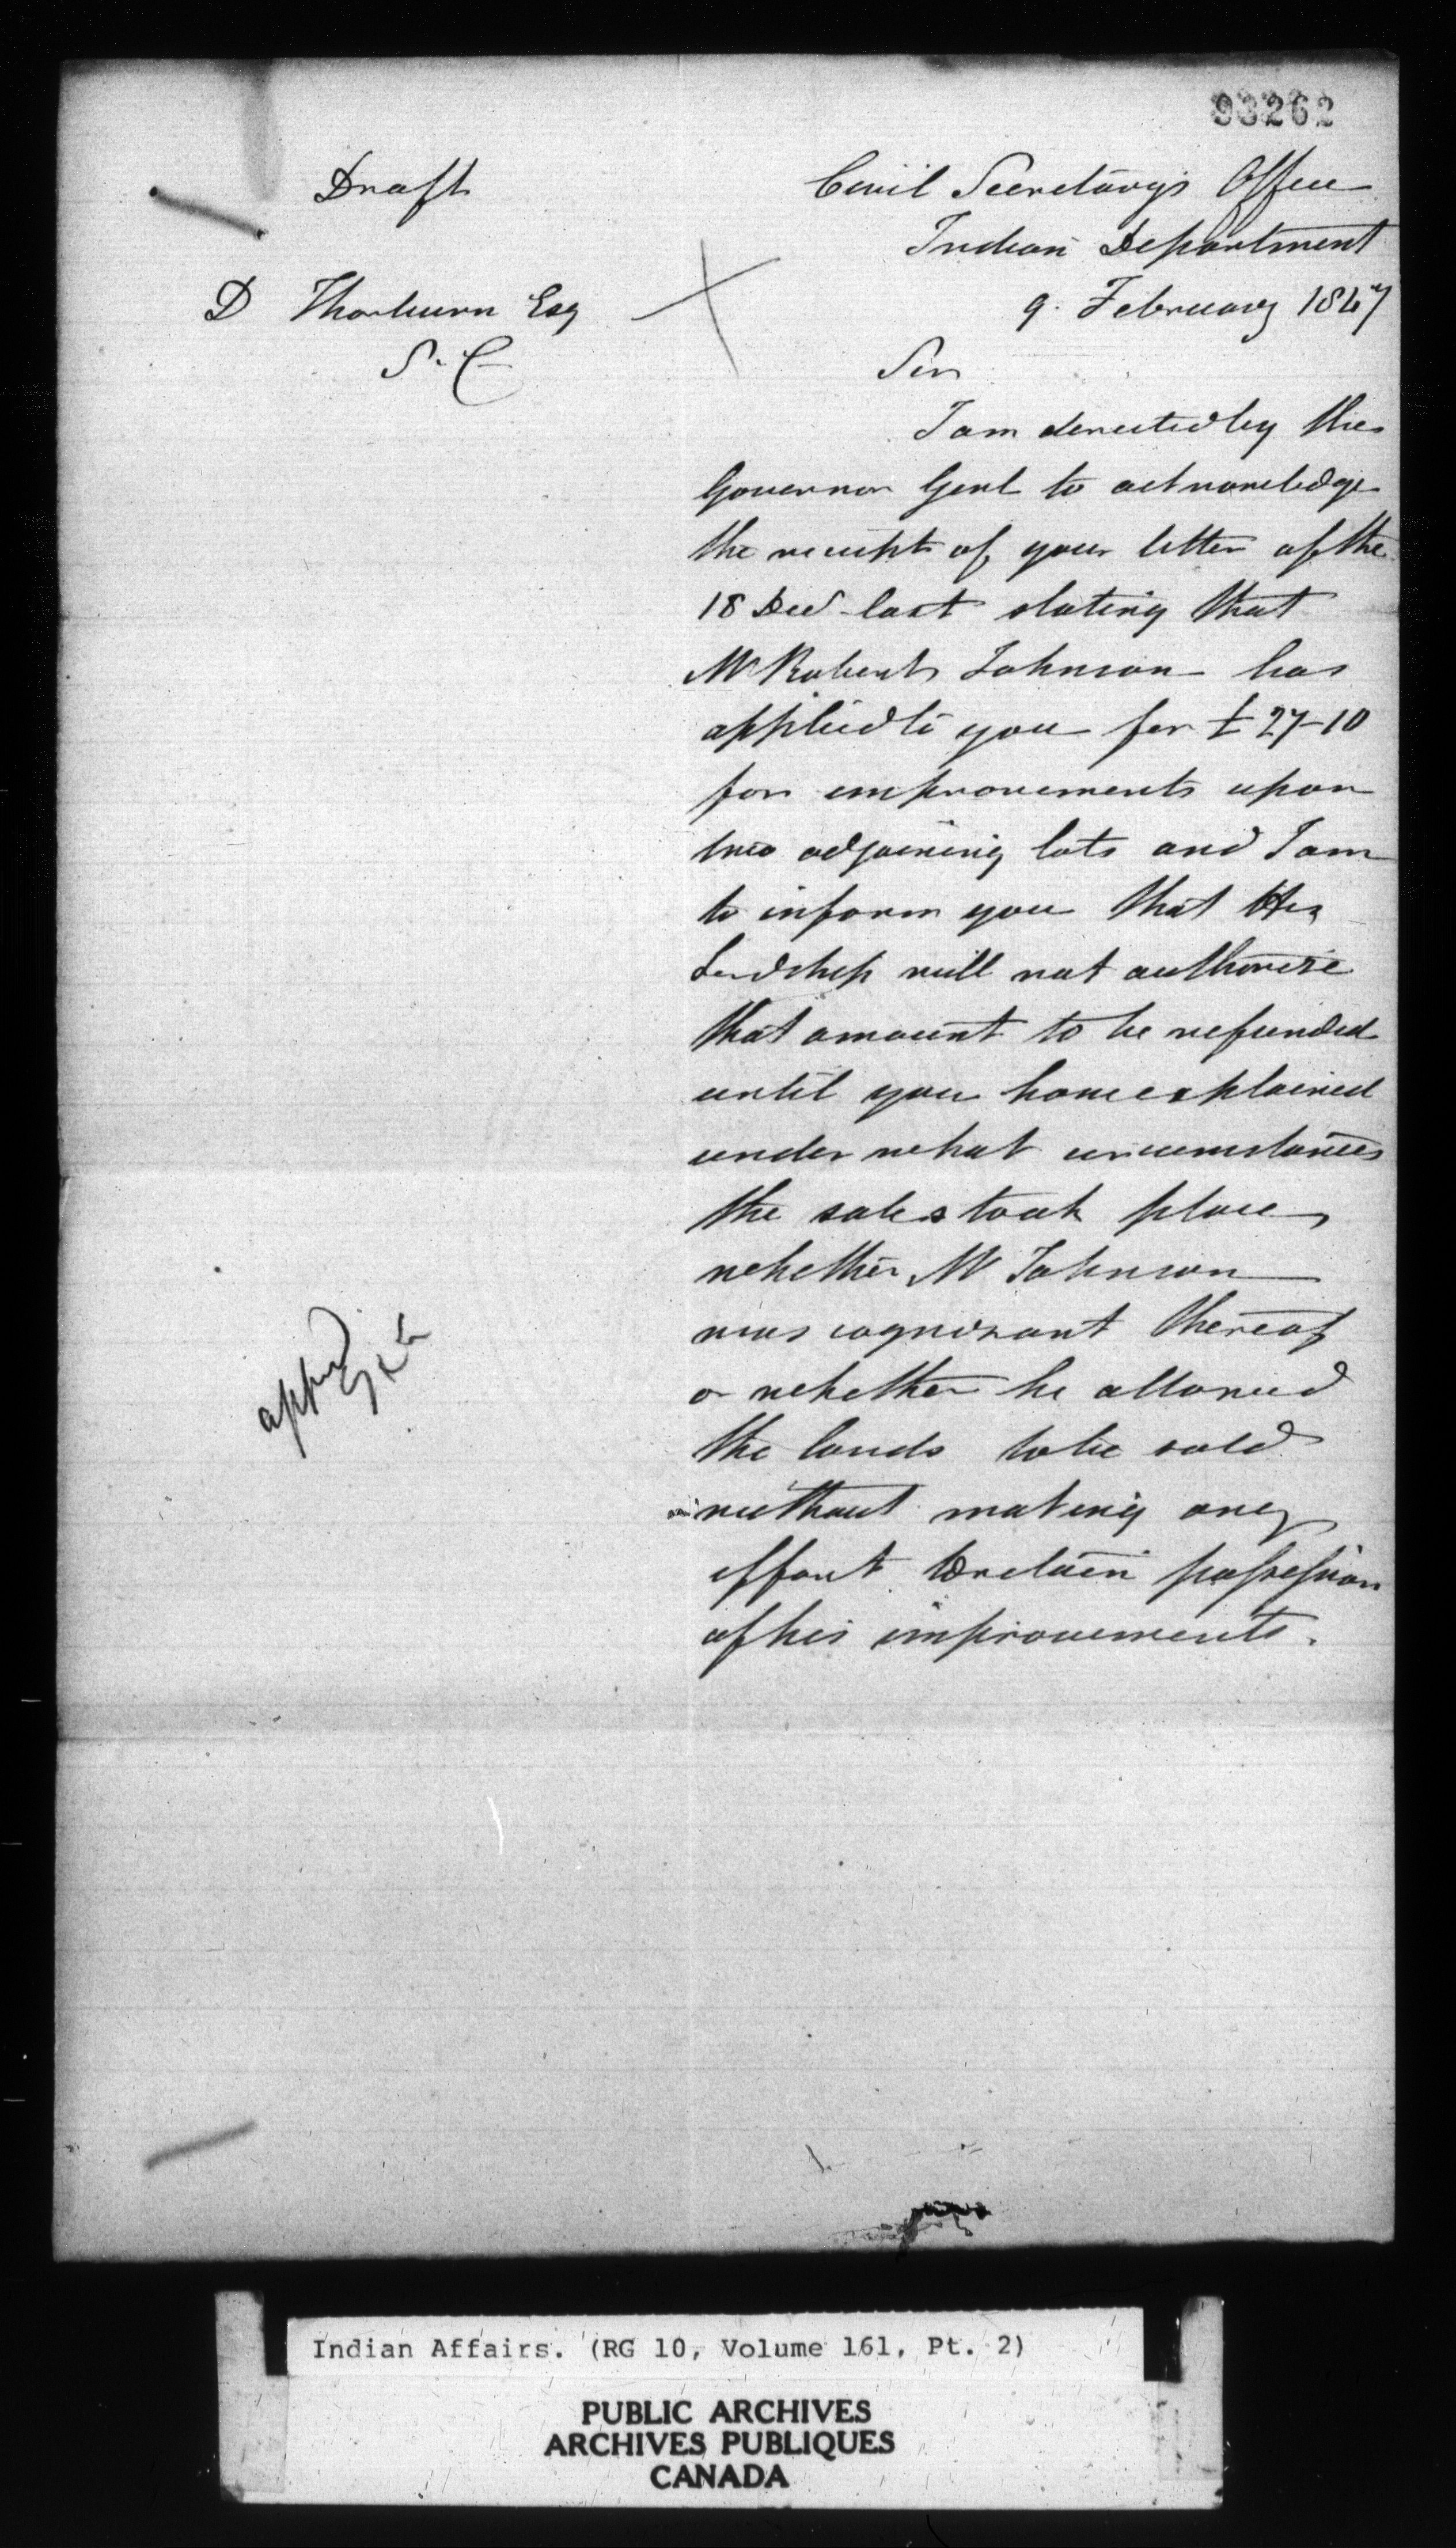 93262
Draft
Civil Secretary's Office
Indian Department
D Thorburn Esq
9. February 1847
S. C
Sir
I am directed by the
Governor Genl to acknowledge
the receipt of your letter of the
18 Decr last stating that
Mr Robert Johnson has
applied to you for £27-10
for improvements upon
two adjoining lots and I am
to inform you that His
Lordship will not authorise
that amount to be refunded
until you have explained
under what circumstances
the sales took place
whether Mr Johnson
was cognizant thereof
or whether he allowed
the lands to be sold
without making any
effort to retain possession
of his improvements.
appd
Indian Affairs. (RG 10, Volume 161, Pt. 2)
PUBLIC ARCHIVES
ARCHIVES PUBLIQUES
CANADA